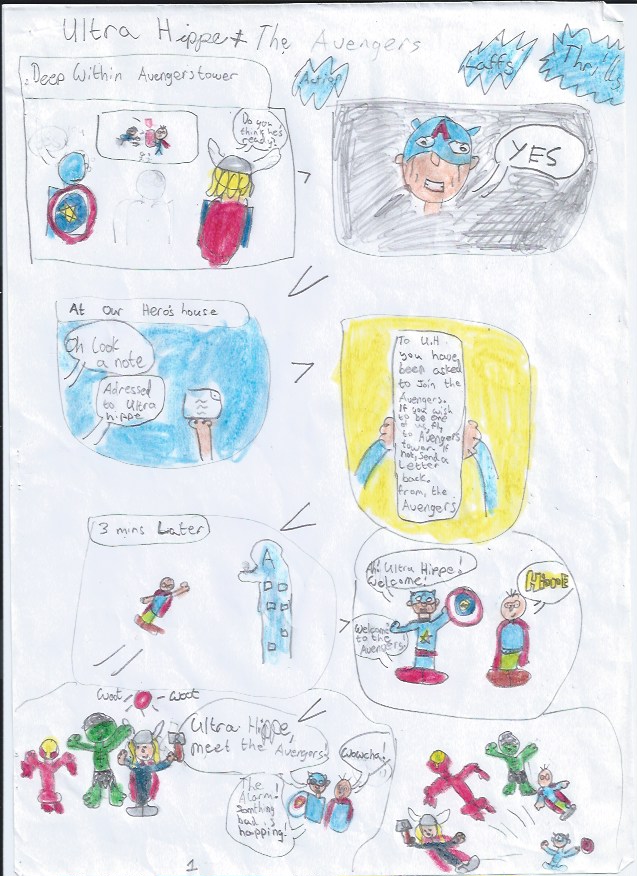 Ultra Hippe & The Avengers
Action
Laffs
Thrills
Deep Within Avengers tower
Do you
think he's
ready?
YES
At Our Hero's house
Oh Look
a note
Adressed
to Ultra
hippe
To U.H
you have
been asked
to Join the
Avengers.
If you wish
to be one
of us, fly
to Avengers
tower. If
not, send a
Letter
back.
from, the
Avengers
3 mins Later
A
Ah! Ultra Hippe!
Welcome!
Welcome
to the
Avengers!
Woot
Woot
Ultra Hippe,
meet the Avengers!
Wowcha!
The
Alarm!
Somthing
bad is
happing!
1